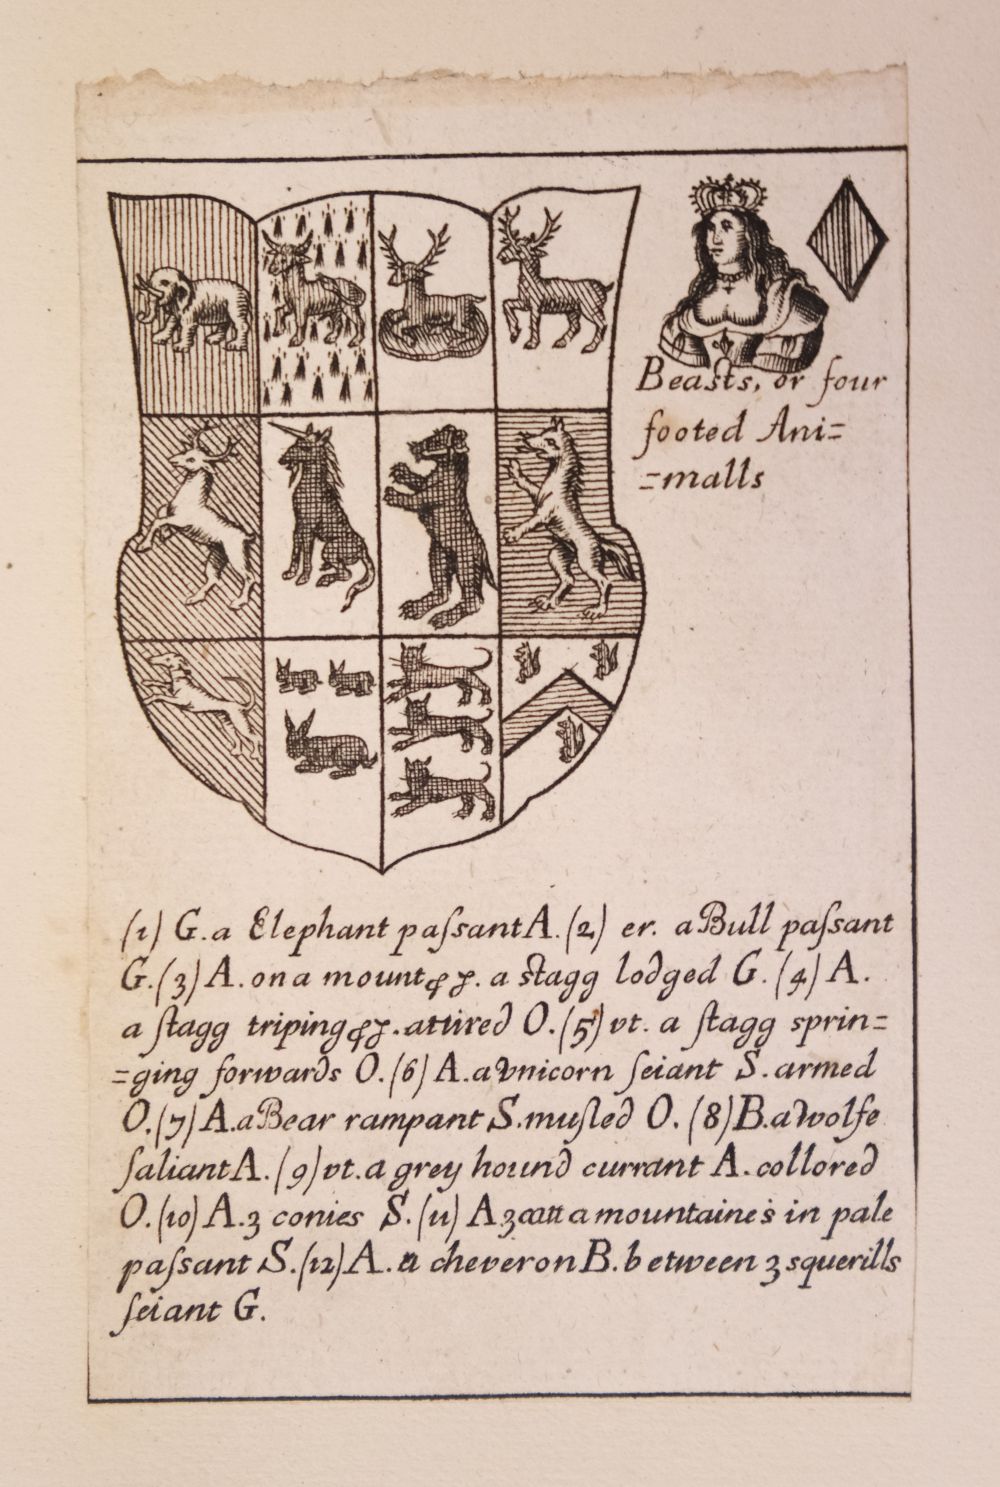 Beasts, or four
footed Ani=
=malls
(1) G. a Elephant paſsant A. (2) er. a Bull paſsant
G. (3) A. on a mount . a stagg lodged G. (4) A.
a ſtagg triping . attired O. (5) vt. a ſtagg sprin=
=ging forwards O. (6) A. a vnicorn ſeiant S. armed
O. (7) A. a Bear rampant S. muſled O. (8) B. a wolfe
ſaliant A. (9) vt. a grey hound currant A. collored
O. (10) A. 3 conies S. (11) A 3 catt a mountaines in pale
paſsant S. (12) A. a cheveron B. between 3 squerills
ſeiant G.